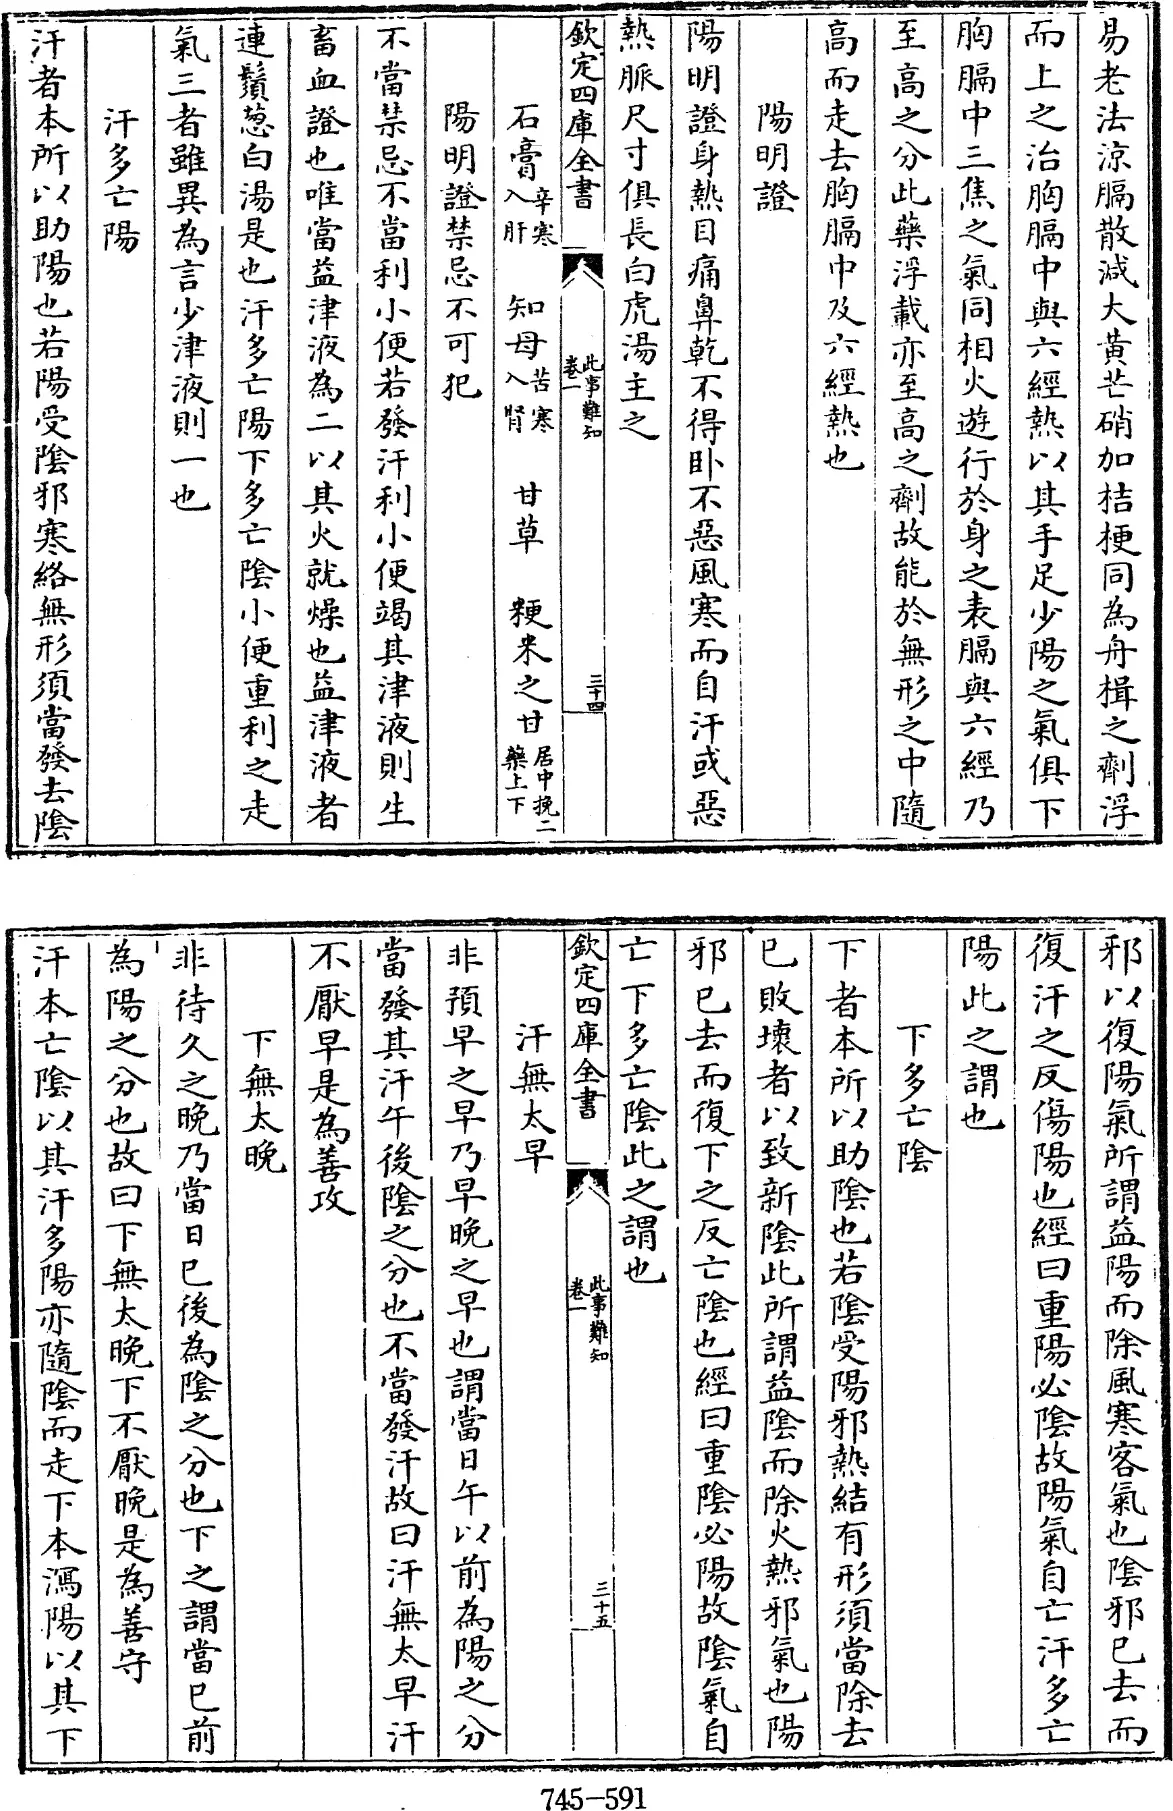 易老法涼膈散減大黃芒硝加桔梗同為舟楫之劑浮
而上之治胸膈中與六經熱以其手足少陽之氣俱下
胸膈中三焦之氣同相火遊行於身之表膈與六經乃
至高之分此藥浮載亦至高之劑故能於無形之中隨
高而走去胸膈中及六經熱也
陽明證
陽明證身熱目痛鼻乾不得卧不惡風寒而自汗或惡
熱脈尺寸俱長白虎湯主之
欽定四庫全書
此事難知
卷一
三十四
石膏辛寒入肝 知母苦寒入腎 甘草 粳米之甘居中挽二藥上下
陽明證禁忌不可犯
不當禁忌不當利小便若發汗利小便竭其津液則生
畜血證也唯當益津液為二以其火就燥也益津液者
連鬚葱白湯是也汗多亡陽下多亡陰小便重利之走
氣三者雖異為言少津液則一也
汗多亡陽
汗者本所以助陽也若陽受陰邪寒絡無形須當發去陰
邪以復陽氣所謂益陽而除風寒客氣也陰邪已去而
復汗之反傷陽也經曰重陽必陰故陽氣自亡汗多亡
陽此之謂也
下多亡陰
下者本所以助陰也若陰受陽邪熱結有形須當除去
已敗壞者以致新陰此所謂益陰而除火熱邪氣也陽
邪已去而復下之反亡陰也經曰重陰必陽故陰氣自
亡下多亡陰此之謂也
欽定四庫全書
此事難知
卷一
三十五
汗無太早
非預早之早乃早晚之早也謂當日午以前為陽之分
當發其汗午後陰之分也不當發汗故曰汗無太早汗
不厭早是為善攻
下無太晚
非待久之晚乃當日巳後為陰之分也下之謂當巳前
為陽之分也故曰下無太晚下不厭晚是為善守
汗本亡陰以其汗多陽亦隨陰而走下本瀉陽以其下
745-591